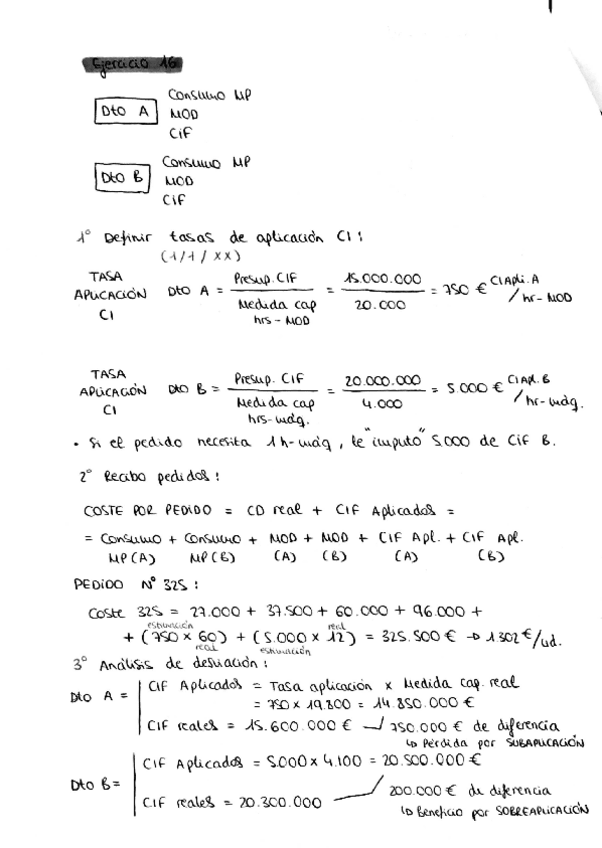 Ejercicio 16
Dto A
Consumo MP
MOD
CIF
Dto B
Consumo MP
MOD
CIF
1° Definir tasas de aplicación CI:
(1/1/XX)
TASA APLICACIÓN CI Dto A = Presup. CIF / Medida cap hrs-MOD = 15.000.000 / 20.000 = 750 € CI Apli. A / hr-MOD
TASA APLICACIÓN CI Dto B = Presup. CIF / Medida cap hrs-máq. = 20.000.000 / 4.000 = 5.000 € CI Apl. B / hr-máq.
• Si el pedido necesita 1h-máq, le "imputo" 5.000 de CIF B.
2° Recibo pedidos:
COSTE POR PEDIDO = CD real + CIF Aplicados =
= Consumo + Consumo + MOD + MOD + CIF Apl. + CIF Apl.
MP(A) MP(B) (A) (B) (A) (B)
PEDIDO N° 325:
Coste 325 = 27.000 + 37.500 + 60.000 + 96.000 +
estimación real
+ (750 × 60) + (5.000 × 12) = 325.500 € → 1302 €/ud.
real estimación
3° Análisis de desviación:
Dto A =
CIF Aplicados = Tasa aplicación × Medida cap. real
= 750 × 19.800 = 14.850.000 €
CIF reales = 15.600.000 € → 750.000 € de diferencia
↳ Pérdida por SUBAPLICACIÓN
Dto B =
CIF Aplicados = 5.000 × 4.100 = 20.500.000 €
CIF reales = 20.300.000
200.000 € de diferencia
↳ Beneficio por SOBREAPLICACIÓN